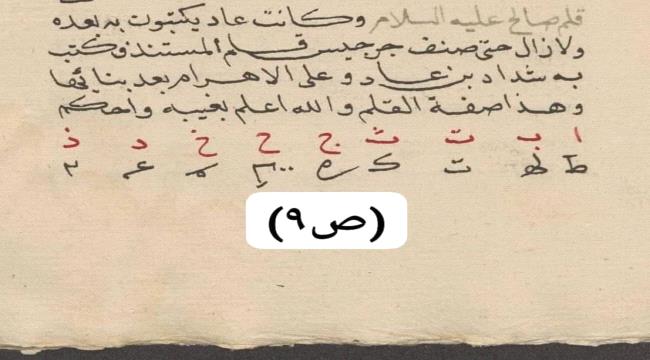 قلم صالح عليه السلام وكانت عاد يكتبون به بعده
ولازال حتى صنف جرجيس قلم المستند وكتب
به شداد بن عاد وعلى الاهرام بعد بنائها
وهذا صفة القلم والله اعلم بغيبه واحكم
ا ب ت ث ج ح خ د ذ
(ص٩)